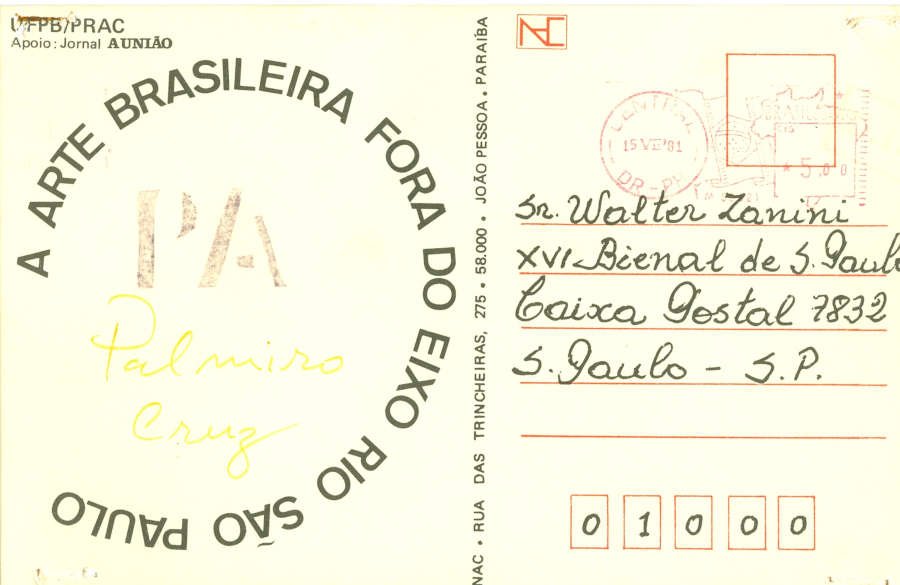 UFPB/PRAC
Apoio: Jornal A UNIÃO
A ARTE BRASILEIRA FORA DO EIXO RIO SÃO PAULO
PA
Palmiro
Cruz
NAC • RUA DAS TRINCHEIRAS, 275 • 58.000 • JOÃO PESSOA • PARAÍBA
NAC
CENTRAL
15 VII '81
DR-PB
BRASIL
* 5,00
Sr. Walter Zanini
XVI Bienal de S. Paulo
Caixa Postal 7832
S. Paulo - S.P.
0 1 0 0 0